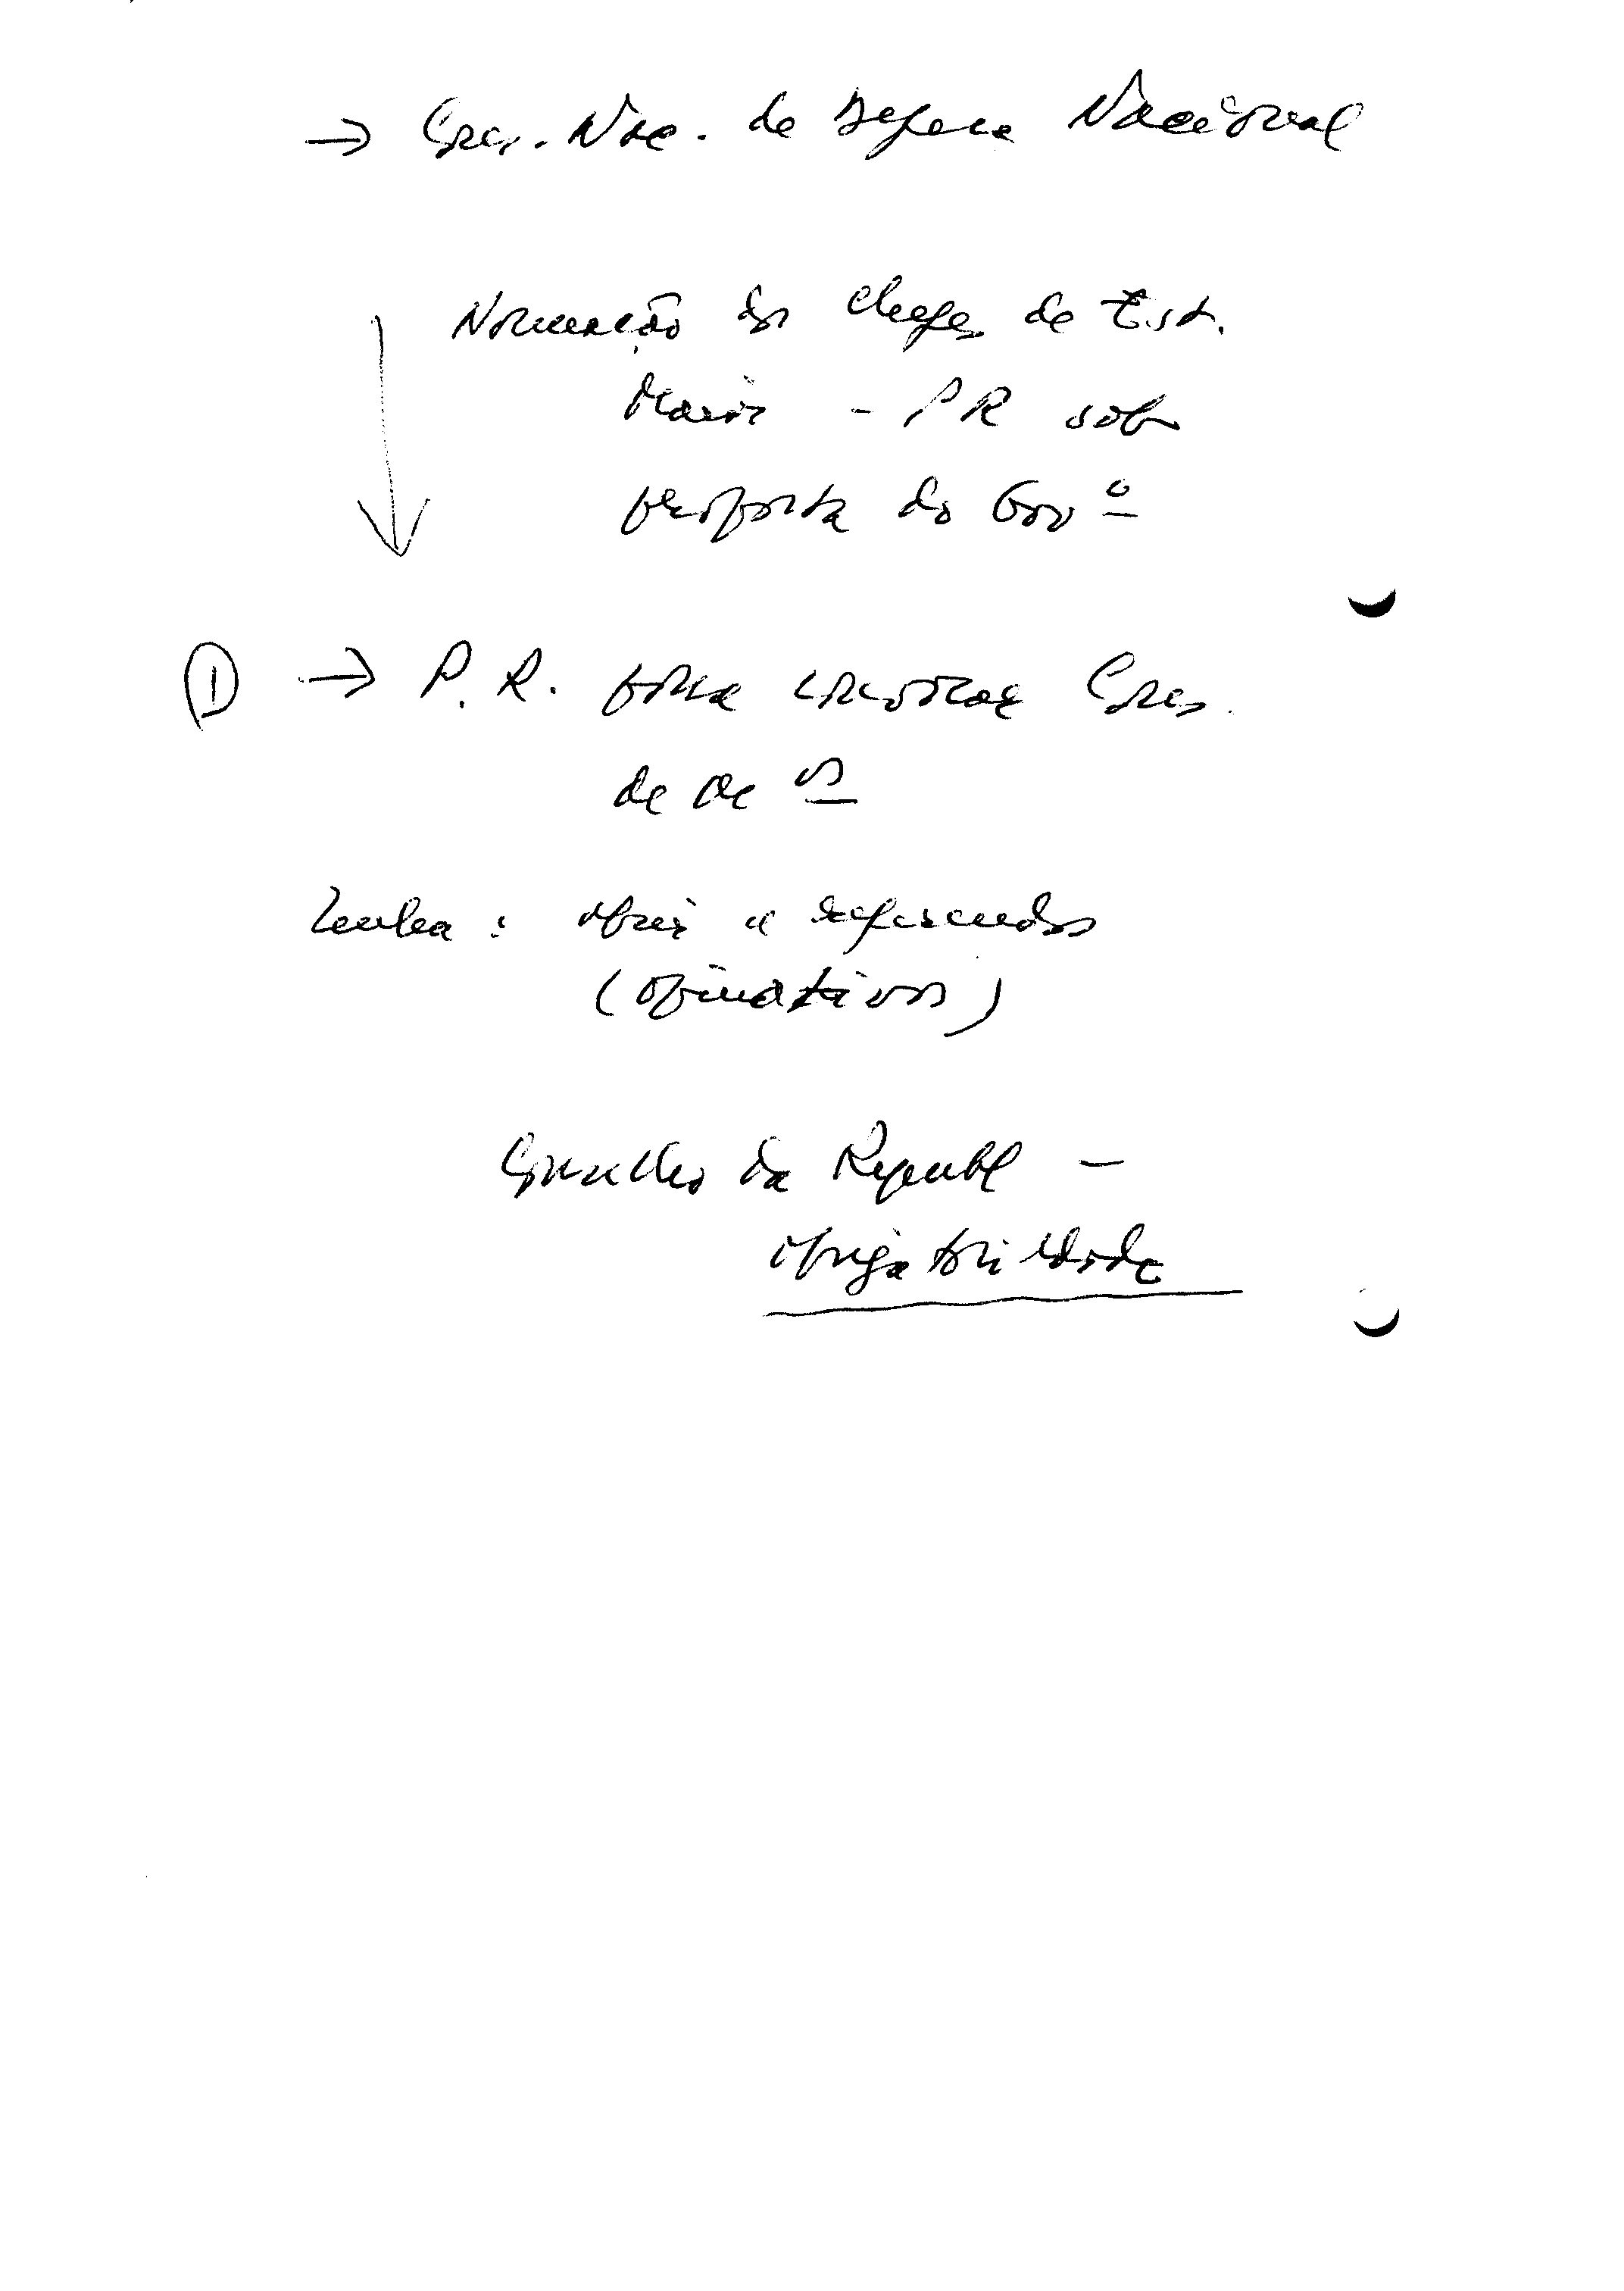 → Cons. Nac. de Defesa Nacional
Nomeação dos Chefes de Est.
Maior - PR sob
proposta do Gov º
① → P.R. possa convocar Cons.
de
: abrir a referendos
(opinativos)
Conselho da Republ -
obrigatoriedade